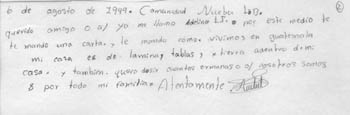 6 de agosto de 1999. Comunidad Nueba
querido amigo o a/ yo me llamo por este medio te
te mando una carta. y le mando cómo. vivimos en guatemala
mi casa es de. lamina, tablas, y tierra adentro de mi
casa. y tambien. quero desir cuantos ermanos o a/ nosotros somos
8 por todo mi familia. Atentamente